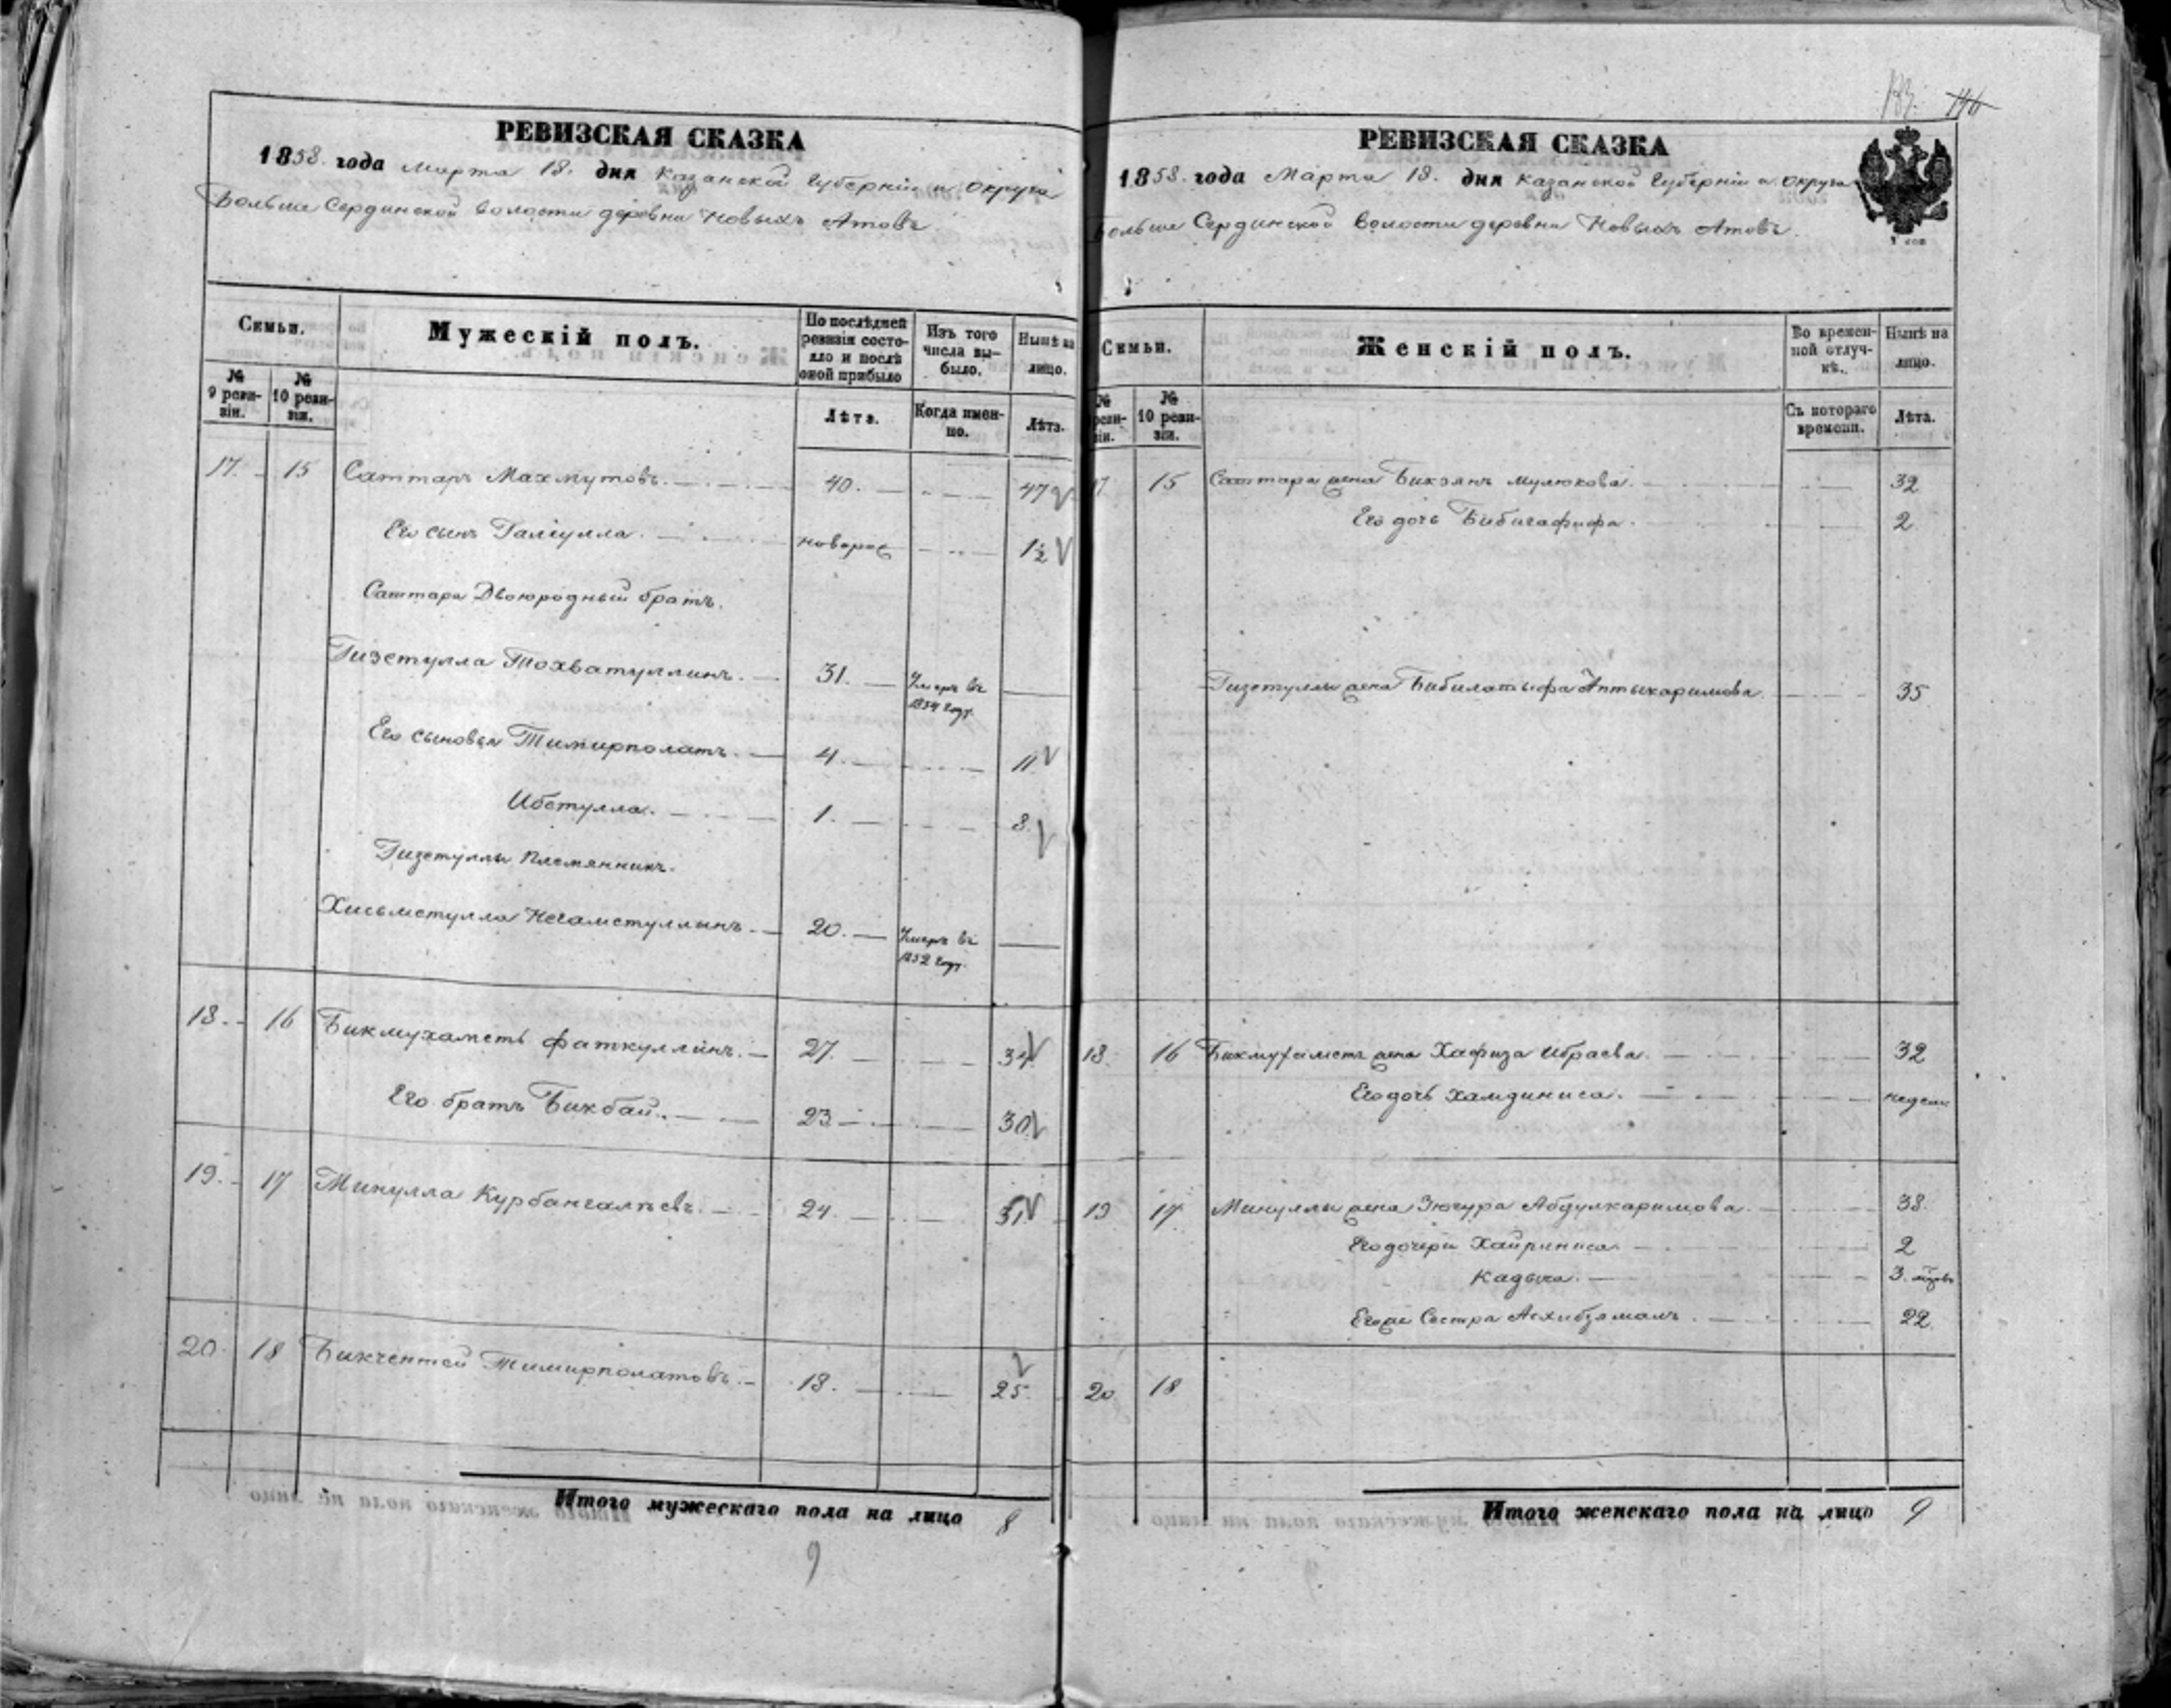 183. 146
РЕВИЗСКАЯ СКАЗКА
1858. года Марта 18. дня Казанской Губерніи и Округа
Больше Сердинской волости деревни Новыхъ Атовъ.
Семьи.
Мужескій полъ.
По послѣдней ревизіи состояло и послѣ оной прибыло
Изъ того числа выбыло.
Нынѣ на лицо.
№ 9 ревизіи.
№ 10 ревизіи.
Лѣта.
Когда именно.
Лѣта.
17. 15 Саттаръ Махмутовъ. 40. 47
Его сынъ Галіулла. новорос 1½
Саттара Двоюродный братъ.
Гизетулла Тохватуллинъ. 31. Умеръ въ 1854 году.
Его сыновья Тимирполатъ. 4. 11.
Ибетулла. 1. 8.
Гизетуллы Племянникъ.
Хисьметулла Негаметуллынъ. 20. Умеръ въ 1852 году.
18. 16 Бикмухаметь Фаткуллинъ. 27. 34
Его братъ Бикбай. 23. 30
19. 17 Минулла Курбангалѣевъ. 24. 31
20. 18 Бикчентей Тимирполатовъ. 18. 25.
Итого мужескаго пола на лицо 8
9
РЕВИЗСКАЯ СКАЗКА
1858. года Марта 18. дня Казанской Губерніи и Округа
Больше Сердинской Волости деревни Новыхъ Атовъ.
1 коп
Семьи.
Женскій полъ.
Во временной отлучкѣ.
Нынѣ на лицо.
№ ревизіи.
№ 10 ревизіи.
Съ котораго времени.
Лѣта.
17. 15 Саттара жена Бикзянъ Мулюкова. 32
Его дочь Бибигафифа. 2
Гизетуллы жена Бибилатыфа Аптыкаримова. 35
18. 16 Бикмухаметь жена Хафиза Ибраева. 32
Его дочь Хамдиниса. недели
19 17. Минуллы жена Зюгура Абдулкаримова. 38.
Его дочери Хайриниса. 2
Кадыча. 3. мѣсяв
Его же Сестра Асхибзямалъ. 22.
20 18
Итого женскаго пола на лицо 9